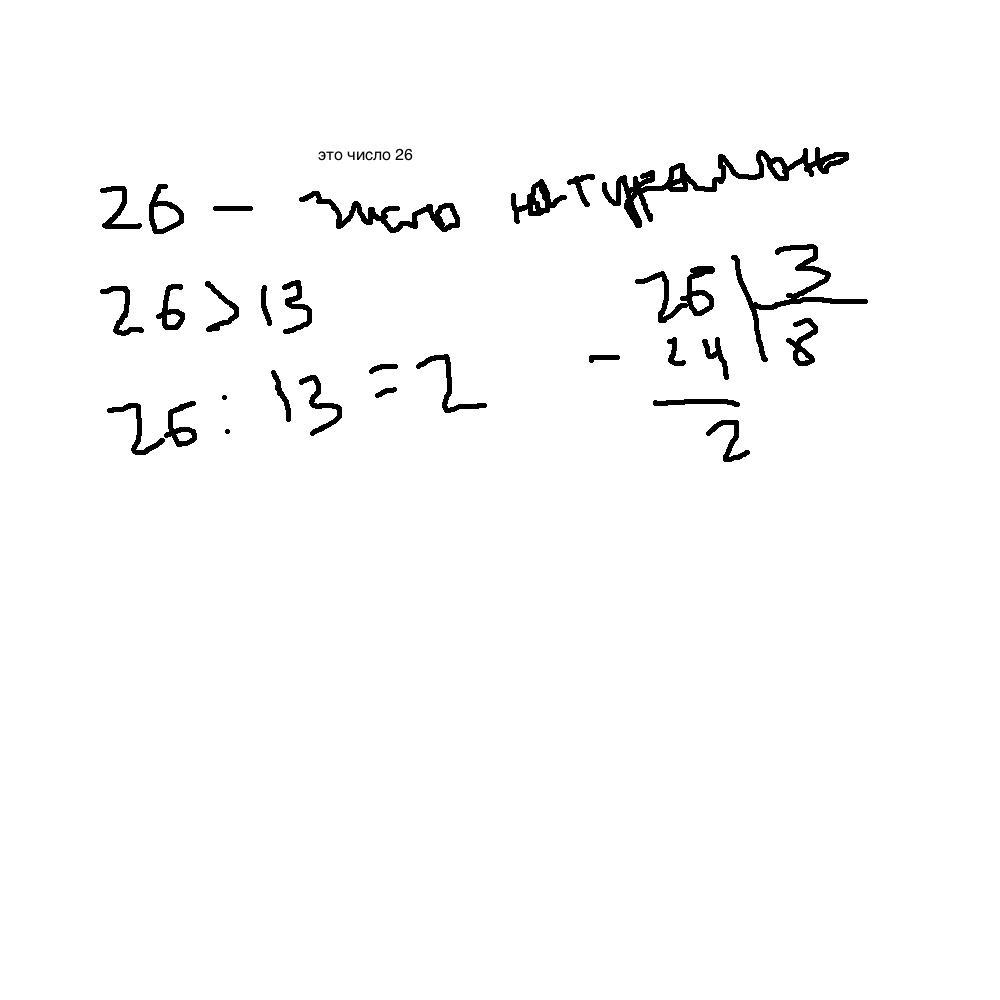 это число 26
26 - число натуральн
26 > 13
26 : 13 = 2
26 | 3
- 24 | 8
2